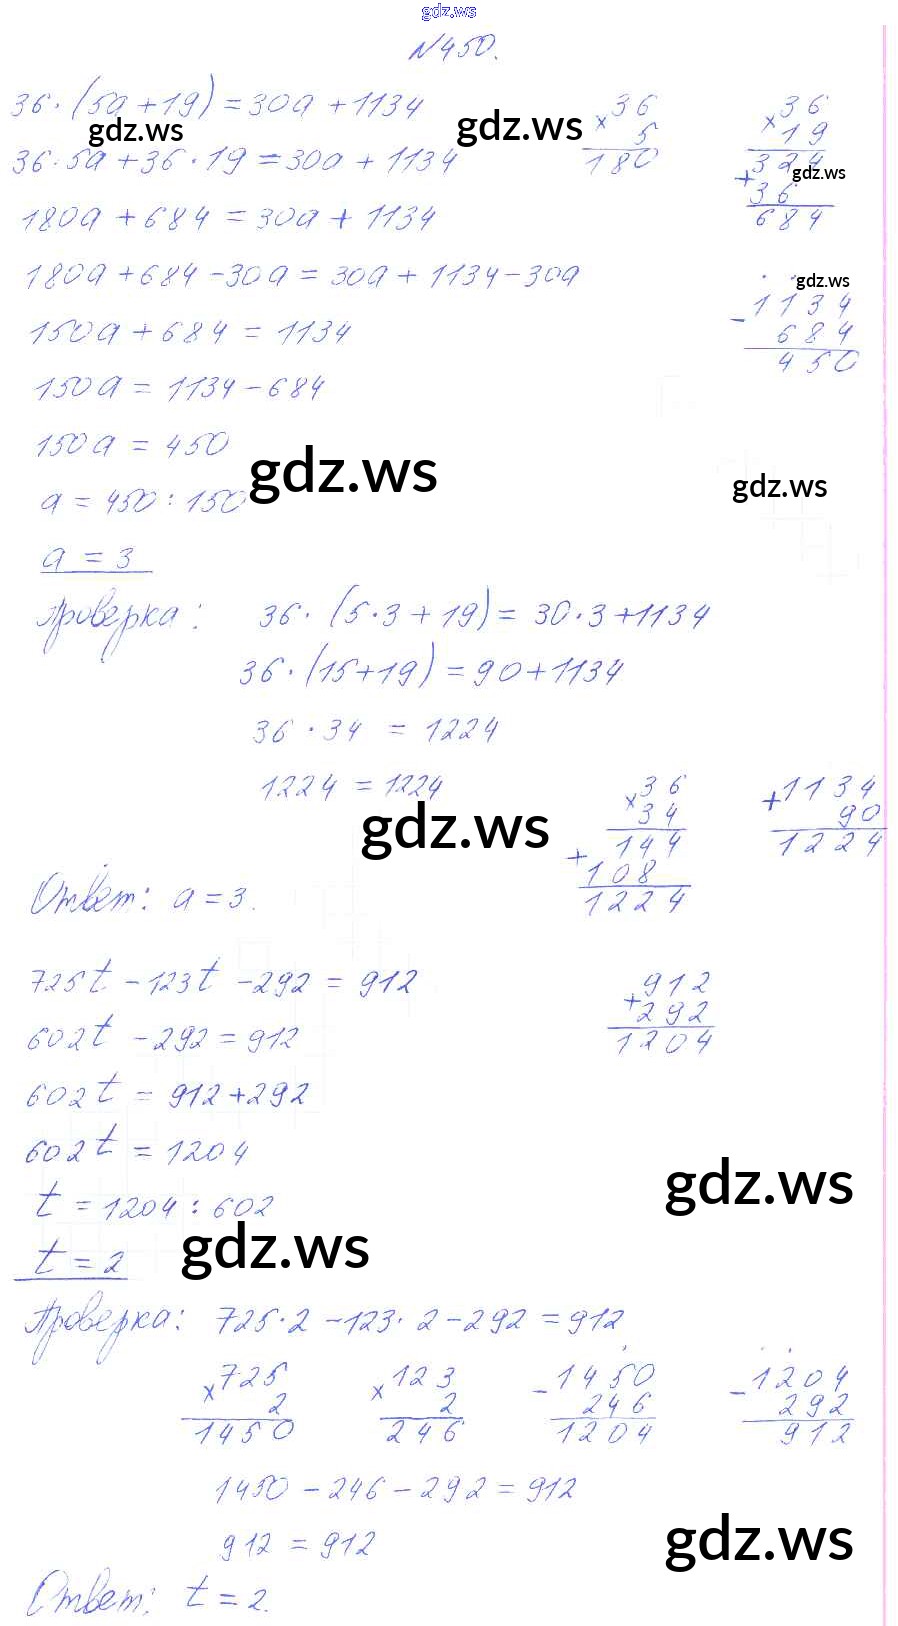 gdz.ws
№450.
36·(5a+19)=30a+1134
36·5a+36·19=30a+1134
180a+684=30a+1134
180a+684-30a=30a+1134-30a
150a+684=1134
150a=1134-684
150a=450
a=450:150
a=3
×36
5
180
×36
19
324
+36
684
-1134
684
450
gdz.ws
gdz.ws
gdz.ws
gdz.ws
gdz.ws
gdz.ws
Проверка: 36·(5·3+19)=30·3+1134
36·(15+19)=90+1134
36·34=1224
1224=1224
×36
34
144
+108
1224
+1134
90
1224
gdz.ws
Ответ: a=3.
725t-123t-292=912
602t-292=912
602t=912+292
602t=1204
t=1204:602
t=2
+912
292
1204
gdz.ws
gdz.ws
Проверка: 725·2-123·2-292=912
×725
2
1450
×123
2
246
-1450
246
1204
-1204
292
912
1450-246-292=912
912=912
gdz.ws
Ответ: t=2.